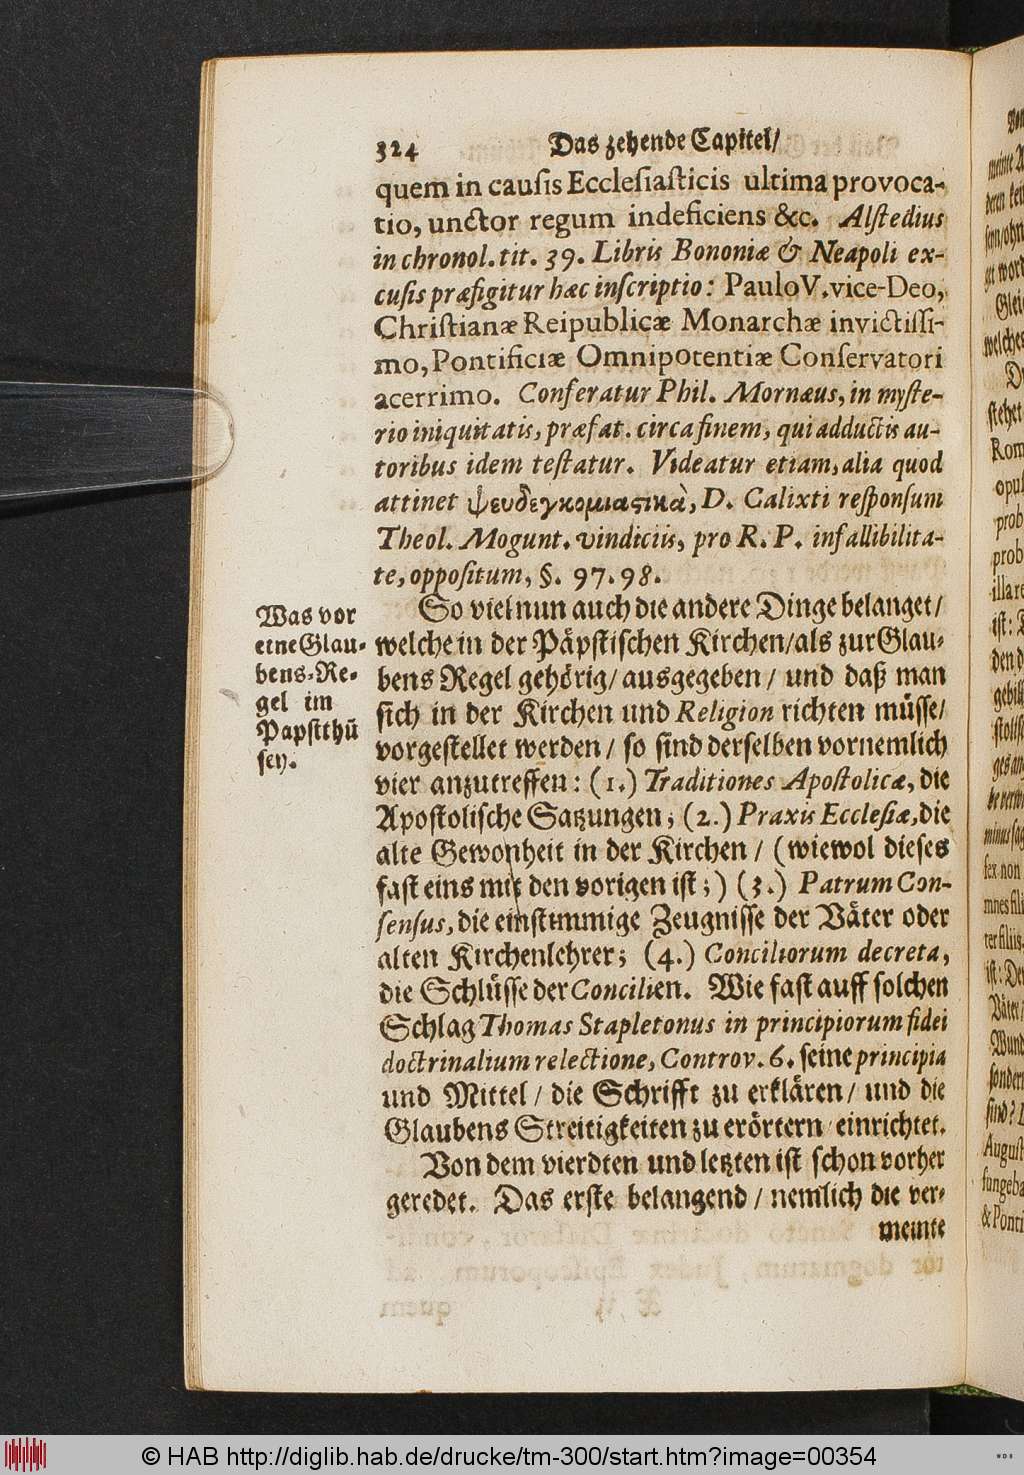 324 Das zehende Capitel/
quem in causis Ecclesiasticis ultima provoca-
tio, unctor regum indeficiens &c. Alstedius
in chronol. tit. 39. Libris Bononiæ & Neapoli ex-
cusis præfigitur hæc inscriptio: Paulo V. vice-Deo,
Christianæ Reipublicæ Monarchæ invictissi-
mo, Pontificiæ Omnipotentiæ Conservatori
acerrimo. Conferatur Phil. Mornæus, in myste-
rio iniquitatis, præfat. circa finem, qui adductis au-
toribus idem testatur. Videatur etiam, alia quod
attinet ψευδεγκομιαστικὰ, D. Calixti responsum
Theol. Mogunt. vindiciis, pro R. P. infallibilita-
te, oppositum, §. 97. 98.
So viel nun auch die andere Dinge belanget/
welche in der Päpstischen Kirchen/als zur Glau-
bens Regel gehörig/ ausgegeben / und daß man
sich in der Kirchen und Religion richten müsse/
vorgestellet werden / so sind derselben vornemlich
vier anzutreffen: (1.) Traditiones Apostolicæ, die
Apostolische Satzungen; (2.) Praxis Ecclesiæ, die
alte Gewonheit in der Kirchen / (wiewol dieses
fast eins mit den vorigen ist;) (3.) Patrum Con-
sensus, die einstimmige Zeugnisse der Väter oder
alten Kirchenlehrer; (4.) Conciliorum decreta,
die Schlüsse der Concilien. Wie fast auff solchen
Schlag Thomas Stapletonus in principiorum fidei
doctrinalium relectione, Controv. 6. seine principia
und Mittel / die Schrifft zu erklären / und die
Glaubens Streitigkeiten zu erörtern / einrichtet.
Von dem vierdten und letzten ist schon vorher
geredet. Das erste belangend / nemlich die ver-
meinte
Was vor
eine Glau-
bens-Re-
gel im
Papstthū
sey.
© HAB http://diglib.hab.de/drucke/tm-300/start.htm?image=00354